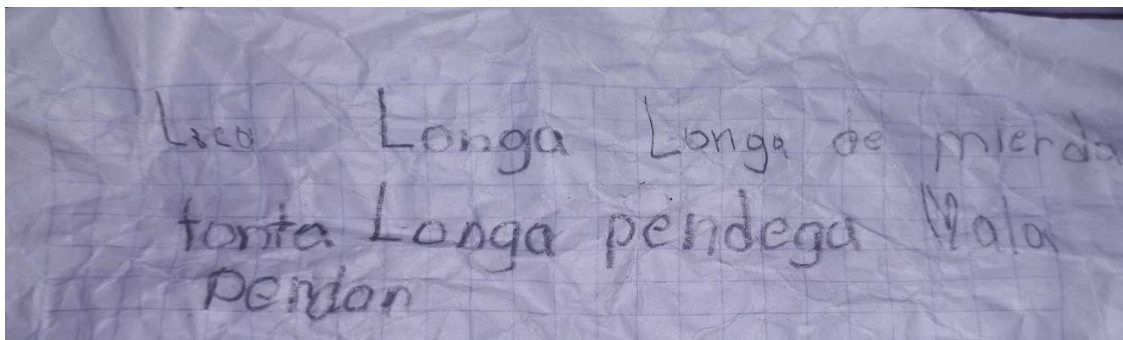 Lica Longa Longa de mierda
tonta Longa pendega Mala
Perdon